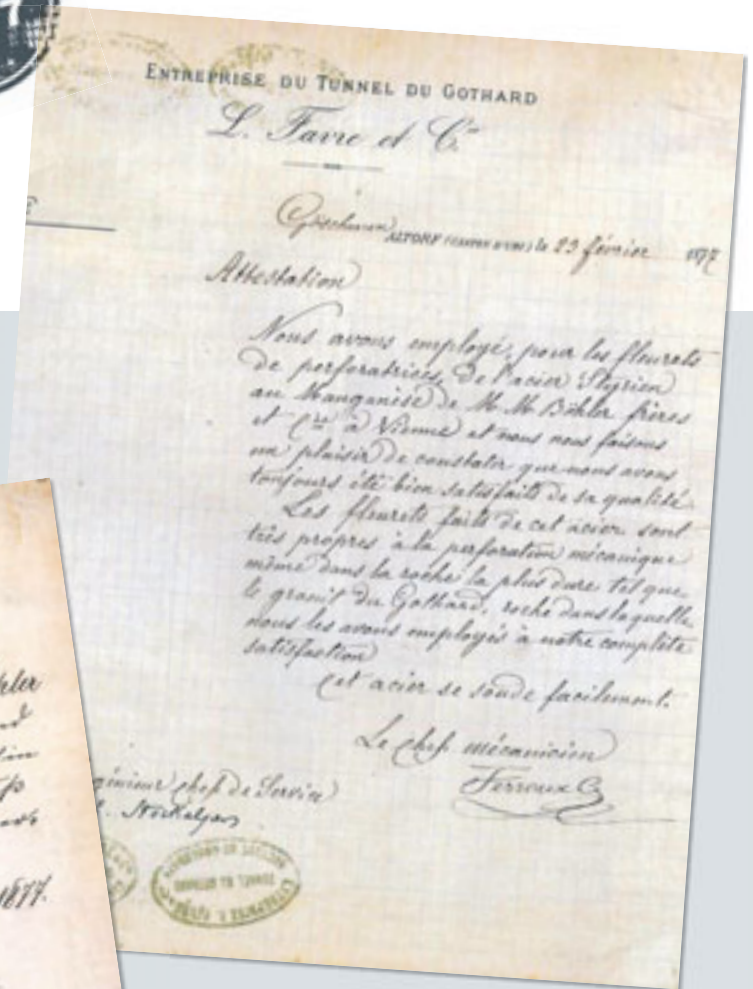 7
ENTREPRISE DU TUNNEL DU GOTHARD
L. Favre et Cie
Göschenen ALTORF (CANTON D'URI) le 23 février 1877
Attestation
Nous avons employé, pour les fleurets
de perforatrices, de l'acier Styrien
au Manganèse de M. M. Böhler frères
et Cie à Vienne et nous nous faisons
un plaisir de constater que nous avons
toujours été bien satisfaits de sa qualité.
Les fleurets faits de cet acier sont
très propres à la perforation mécanique
même dans la roche la plus dure tel que
le granit du Gothard, roche dans laquelle
nous les avons employés à notre complète
satisfaction
Cet acier se soude facilement.
Le chef mécanicien
Ferroux
génieur chef de Service
1877.